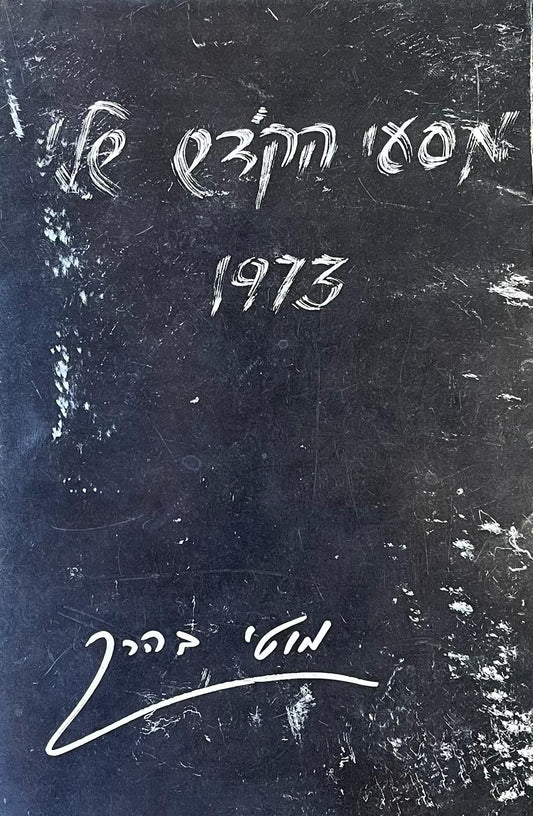 מסעי הקודש שלי
1973
מוטי בהרך